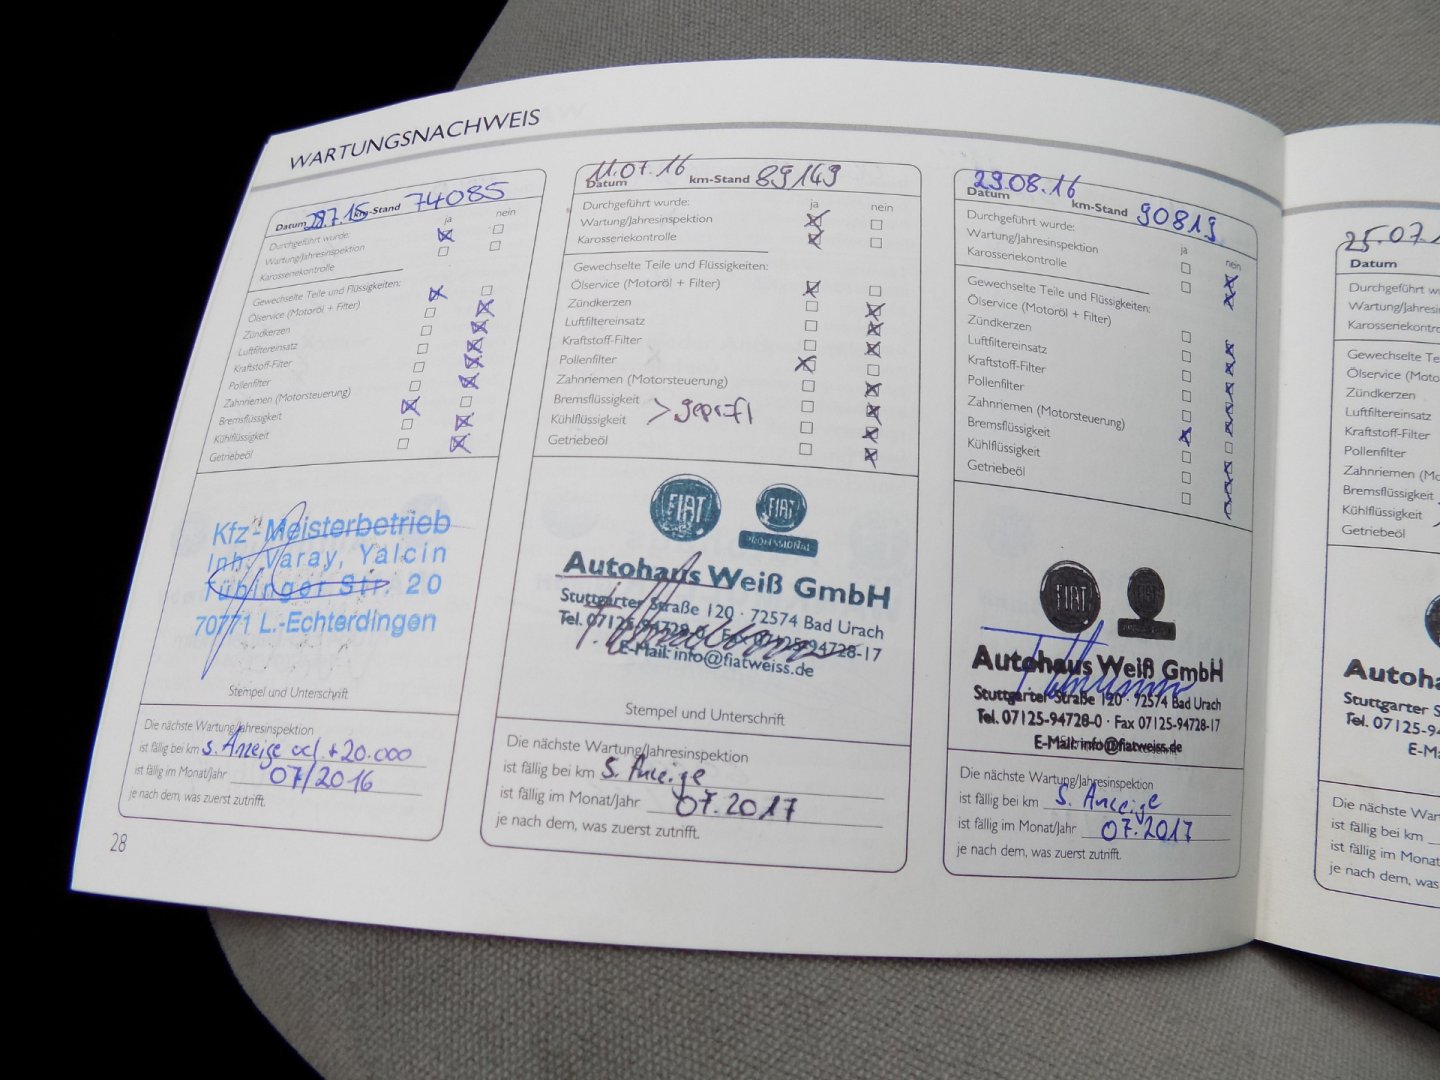 WARTUNGSNACHWEIS
Datum 28.7.15 km-Stand 74085
ja nein
Durchgeführt wurde:
Wartung/Jahresinspektion
Karosseriekontrolle
Gewechselte Teile und Flüssigkeiten:
Ölservice (Motoröl + Filter)
Zündkerzen
Luftfiltereinsatz
Kraftstoff-Filter
Pollenfilter
Zahnriemen (Motorsteuerung)
Bremsflüssigkeit
Kühlflüssigkeit
Getriebeöl
Kfz-Meisterbetrieb
Inh. Varay, Yalcin
Tübinger Str. 20
70771 L.-Echterdingen
Stempel und Unterschrift
Die nächste Wartung/Jahresinspektion
ist fällig bei km s. Anzeige +20.000
ist fällig im Monat/Jahr 07/2016
je nach dem, was zuerst zutrifft.
28
11.07.16 89149
Datum km-Stand
Durchgeführt wurde: ja nein
Wartung/Jahresinspektion
Karosseriekontrolle
Gewechselte Teile und Flüssigkeiten:
Ölservice (Motoröl + Filter)
Zündkerzen
Luftfiltereinsatz
Kraftstoff-Filter
Pollenfilter
Zahnriemen (Motorsteuerung)
Bremsflüssigkeit
Kühlflüssigkeit > geprüft
Getriebeöl
FIAT FIAT
PROFESSIONAL
Autohaus Weiß GmbH
Stuttgarter Straße 120 · 72574 Bad Urach
Tel. 07125-94728-0 · Fax 07125-94728-17
E-Mail: info@fiatweiss.de
Stempel und Unterschrift
Die nächste Wartung/Jahresinspektion
ist fällig bei km S. Anzeige
ist fällig im Monat/Jahr 07.2017
je nach dem, was zuerst zutrifft.
29.08.16 90819
Datum km-Stand
Durchgeführt wurde: ja nein
Wartung/Jahresinspektion
Karosseriekontrolle
Gewechselte Teile und Flüssigkeiten:
Ölservice (Motoröl + Filter)
Zündkerzen
Luftfiltereinsatz
Kraftstoff-Filter
Pollenfilter
Zahnriemen (Motorsteuerung)
Bremsflüssigkeit
Kühlflüssigkeit
Getriebeöl
FIAT
Autohaus Weiß GmbH
Stuttgarter Straße 120 · 72574 Bad Urach
Tel. 07125-94728-0 · Fax 07125-94728-17
E-Mail: info@fiatweiss.de
Die nächste Wartung/Jahresinspektion
ist fällig bei km S. Anzeige
ist fällig im Monat/Jahr 07.2017
je nach dem, was zuerst zutrifft.
25.07.1
Datum
Durchgeführt w
Wartung/Jahresin
Karosseriekontro
Gewechselte Te
Ölservice (Moto
Zündkerzen
Luftfiltereinsatz
Kraftstoff-Filter
Pollenfilter
Zahnriemen (Mo
Bremsflüssigkeit
Kühlflüssigkeit
Getriebeöl
Autoha
Stuttgarter S
Tel. 07125-9
E-Ma
Die nächste War
ist fällig bei km
ist fällig im Monat
je nach dem, was